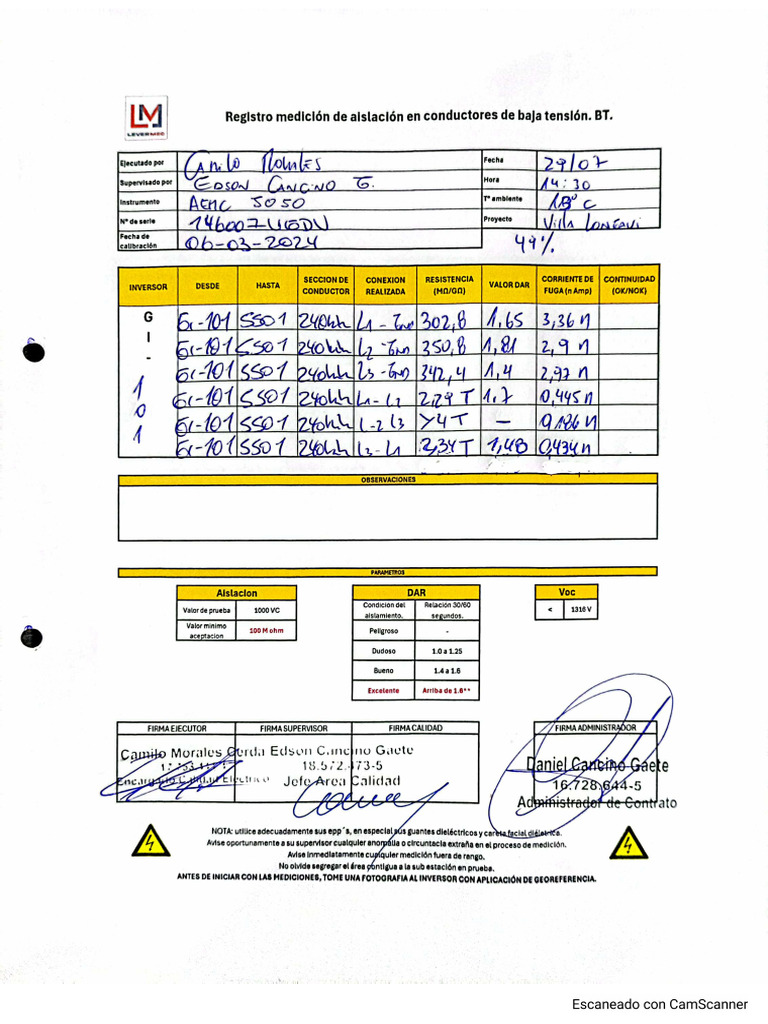 LM
LEVERMEC
Registro medición de aislación en conductores de baja tensión. BT.
Ejecutado por Camilo Morales Fecha 29/07
Supervisado por Edson Cancino G. Hora 14:30
Instrumento AEMC 5050 T° ambiente 18°C
N° de serie Proyecto Villa Longavi
Fecha de calibración 06-03-2024 49%
INVERSOR DESDE HASTA SECCION DE CONDUCTOR CONEXION REALIZADA RESISTENCIA (MΩ/GΩ) VALOR DAR CORRIENTE DE FUGA (n Amp) CONTINUIDAD (OK/NOK)
GI-101
GI-101 SS01 L1-GND 302,8 1,65 3,36 n
GI-101 SS01 L2-GND 350,8 1,81 2,9 n
GI-101 SS01 L3-GND 342,4 1,4 2,97 n
GI-101 SS01 L1-L2 2,29 T 1,7 0,445 n
GI-101 SS01 L2-L3 >4 T - 0,186 n
GI-101 SS01 L3-L1 2,34 T 1,48 0,434 n
OBSERVACIONES
PARAMETROS
Aislacion
Valor de prueba 1000 VC
Valor minimo aceptacion 100 M ohm
DAR
Condicion del aislamiento. Relación 30/60 segundos.
Peligroso -
Dudoso 1.0 a 1.25
Bueno 1.4 a 1.6
Excelente Arriba de 1.6**
Voc
< 1316 V
FIRMA EJECUTOR FIRMA SUPERVISOR FIRMA CALIDAD FIRMA ADMINISTRADOR
Camilo Morales Cerda Edson Cancino Gaete Daniel Cancino Gaete
18.572.473-5 16.728.644-5
Encargado Calidad Electrico Jefe Area Calidad Administrador de Contrato
NOTA: utilice adecuadamente sus epp´s, en especial sus guantes dieléctricos y careta facial diélectrica.
Avise oportunamente a su supervisor cualquier anomalía o circuntacia extraña en el proceso de medición.
Avise inmediatamente cualquier medición fuera de rango.
No olvide segregar el área contigua a la sub estación en prueba.
ANTES DE INICIAR CON LAS MEDICIONES, TOME UNA FOTOGRAFIA AL INVERSOR CON APLICACIÓN DE GEOREFERENCIA.
Escaneado con CamScanner